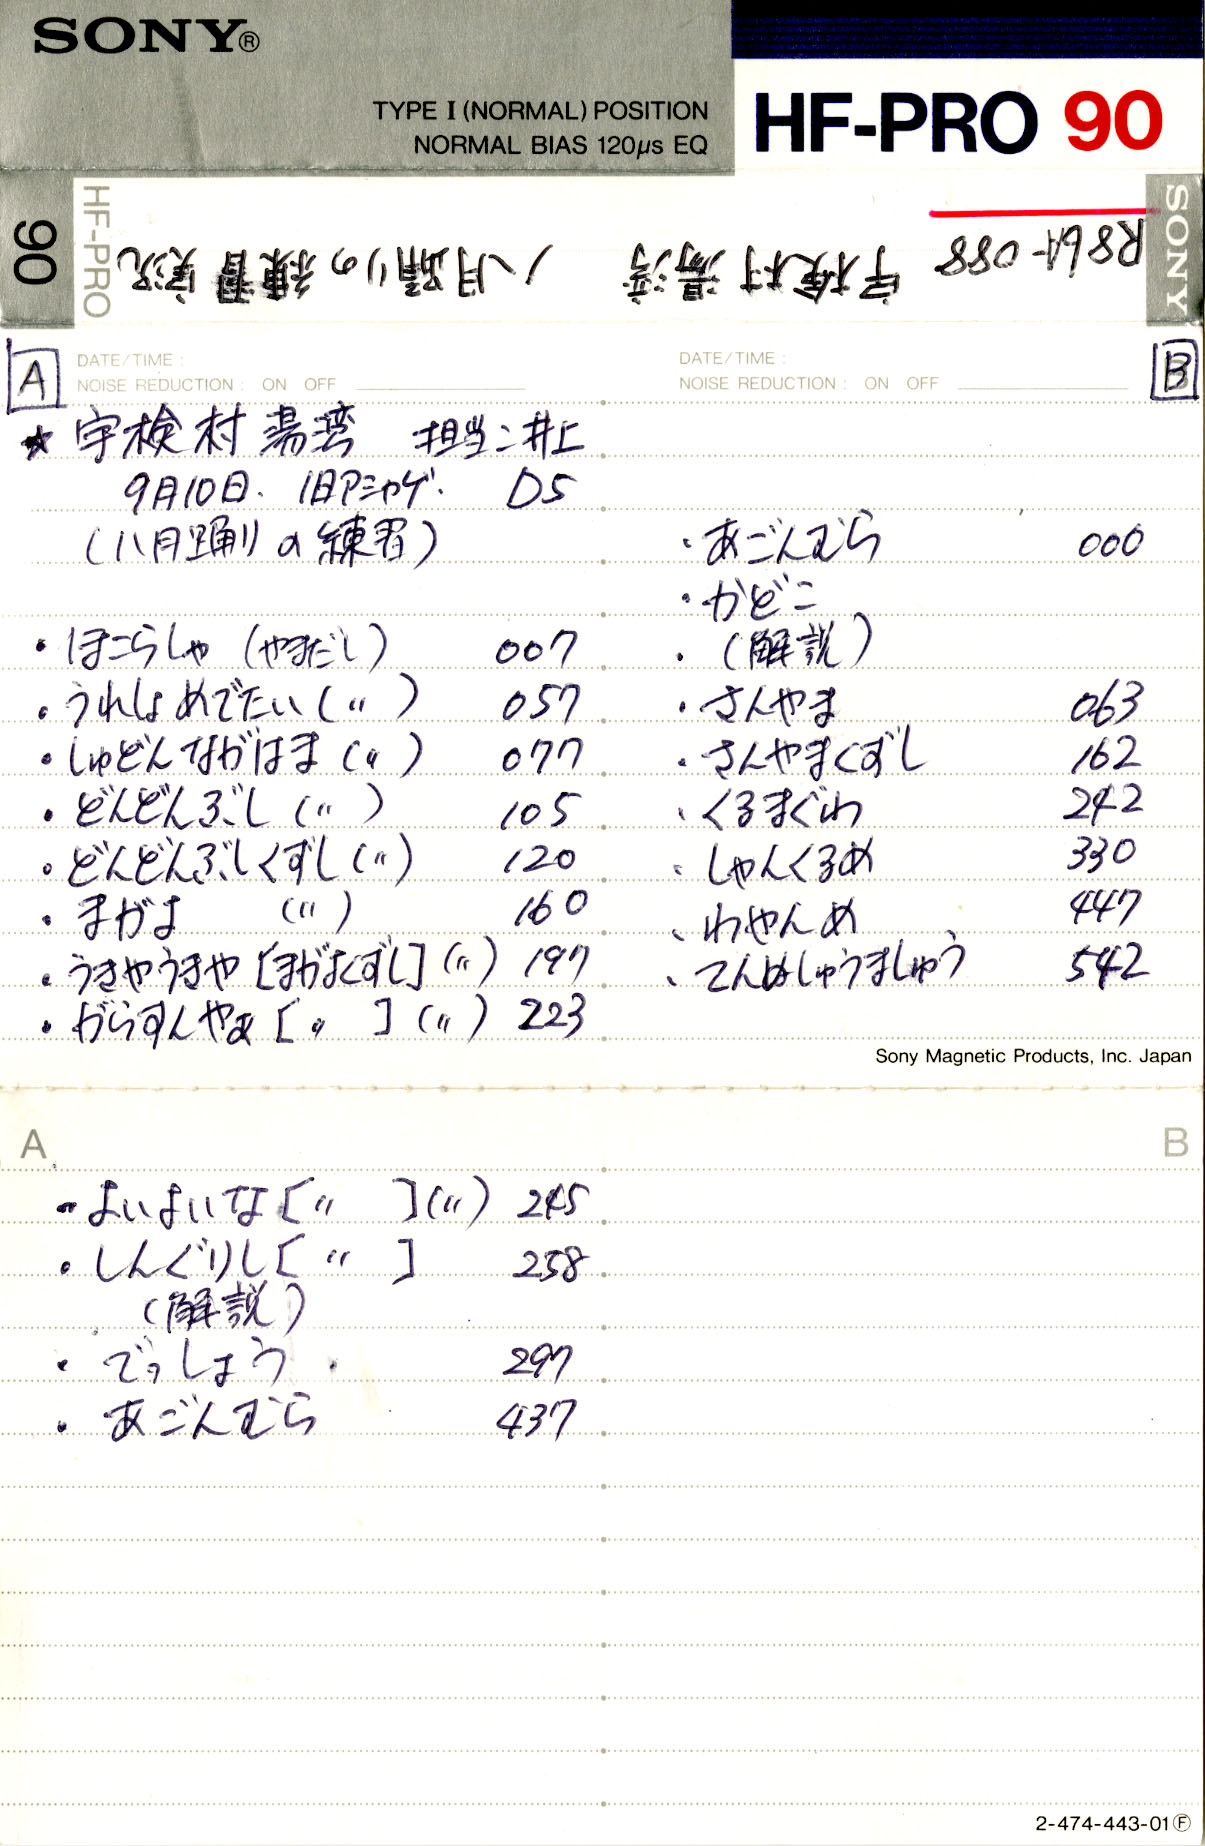 SONY®
TYPE I (NORMAL) POSITION
NORMAL BIAS 120μs EQ
HF-PRO 90
90
HF-PRO
SONY
R86A-088 宇検村湯湾 八月踊りの練習実況
A
DATE/TIME :
NOISE REDUCTION : ON OFF
★宇検村湯湾 担当:井上
9月10日. 旧アシャゲ. DS
(八月踊りの練習)
・ほこらしゃ (やまだし) 007
・うれしょめでたい (〃) 057
・しゅどんながはま (〃) 077
・どんどんぶし (〃) 105
・どんどんぶしくずし (〃) 120
・まがよ (〃) 160
・うきやうきや [まがよくずし] (〃) 197
・がらすんやぁ [〃] (〃) 223
B
DATE/TIME :
NOISE REDUCTION : ON OFF
・あごんむら 000
・かどこ
・(解説)
・さんやま 063
・さんやまくずし 162
・くるまぐわ 242
・しゃんくるめ 330
・わやんめ 447
・てんぬしゅうましゅう 542
Sony Magnetic Products, Inc. Japan
A
・よいよいな [〃] (〃) 245
・しんぐりし [〃] 258
(解説)
・でっしょう 297
・あごんむら 437
B
2-474-443-01Ⓕ